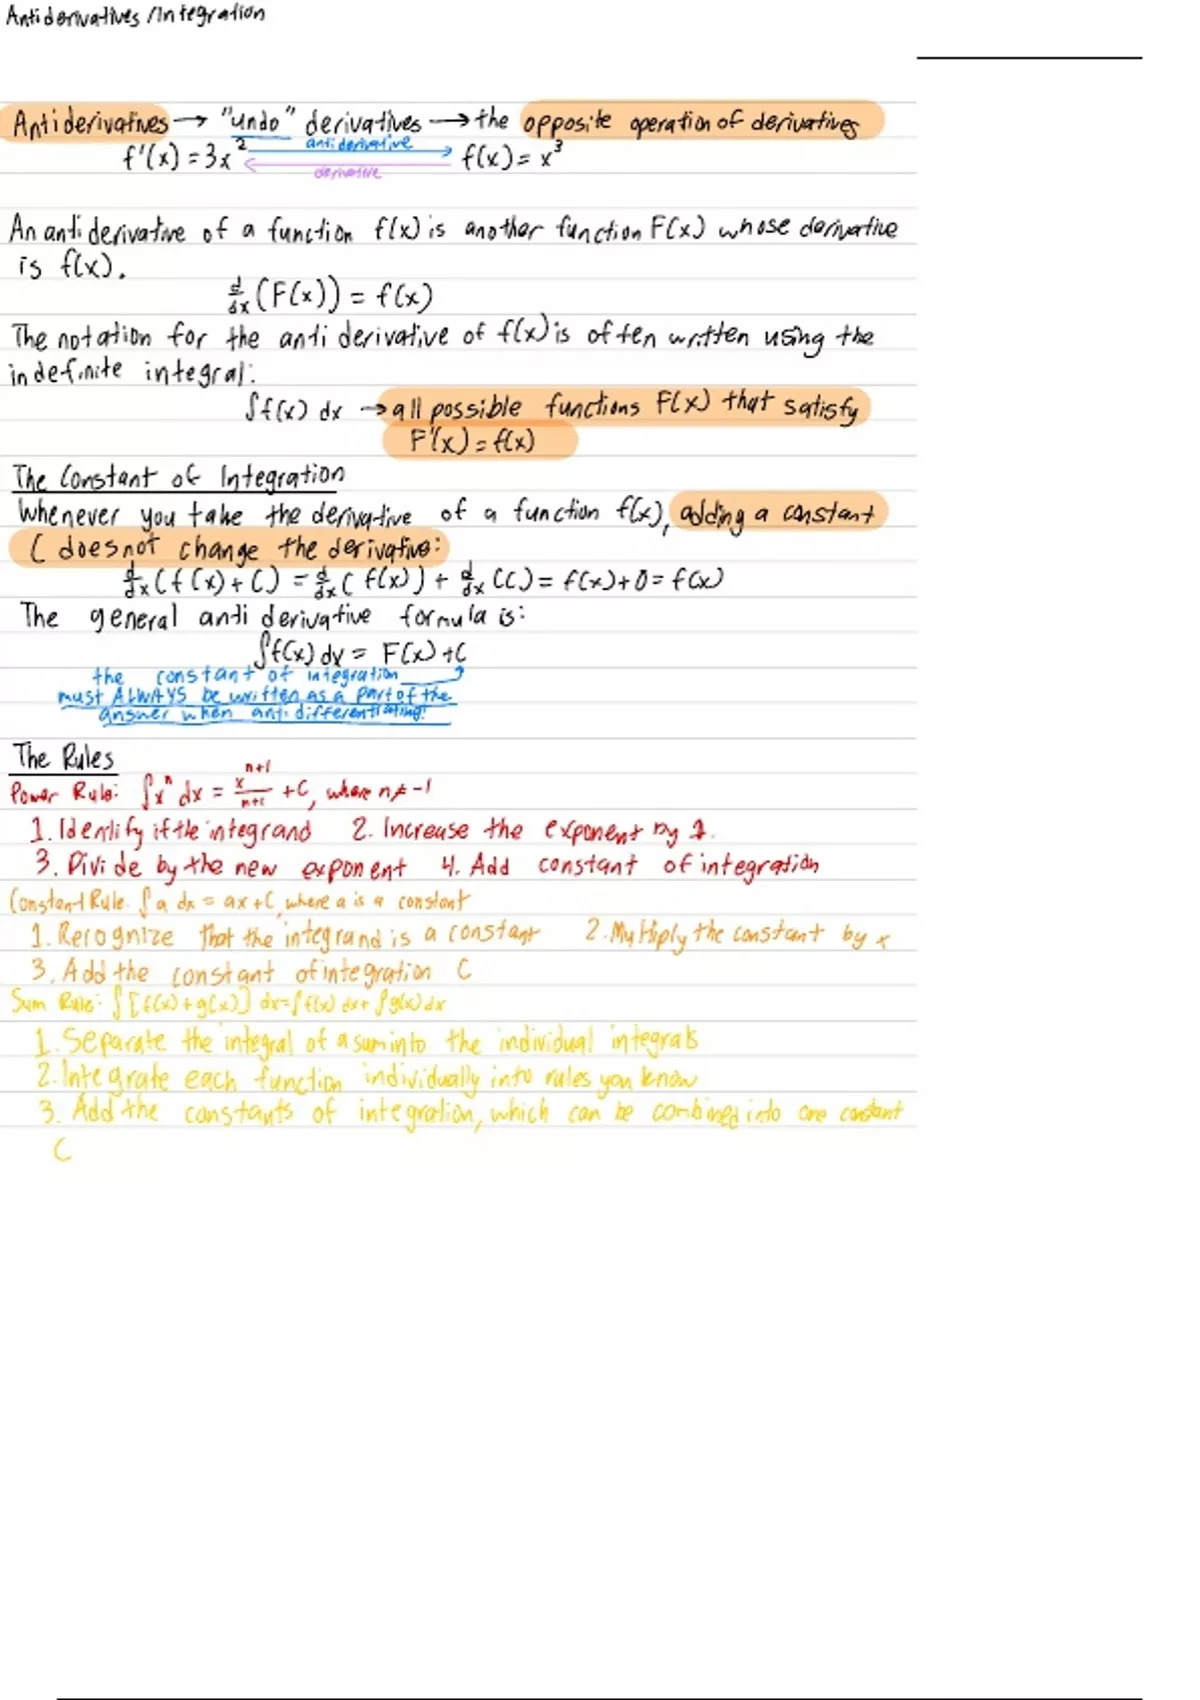 Antiderivatives / Integration
Antiderivatives → "undo" derivatives → the opposite operation of derivatives
f'(x) = 3x² antiderivative f(x) = x³
derivative
An antiderivative of a function f(x) is another function F(x) whose derivative
is f(x).
d/dx (F(x)) = f(x)
The notation for the anti derivative of f(x) is often written using the
indefinite integral:
∫f(x) dx → all possible functions F(x) that satisfy
F'(x) = f(x)
The Constant of Integration
Whenever you take the derivative of a function f(x), adding a constant
C does not change the derivative:
d/dx (f(x) + C) = d/dx (f(x)) + d/dx (C) = f(x) + 0 = f(x)
The general anti derivative formula is:
∫f(x) dx = F(x) + C
the constant of integration
must ALWAYS be written as a part of the
answer when anti differentiating!
The Rules
Power Rule: ∫xⁿ dx = x^(n+1)/(n+1) + C, where n ≠ -1
1. Identify if the integrand 2. Increase the exponent by 1.
3. Divide by the new exponent 4. Add constant of integration
Constant Rule: ∫a dx = ax + C, where a is a constant
1. Recognize that the integrand is a constant 2. Multiply the constant by x
3. Add the constant of integration C
Sum Rule: ∫[f(x) + g(x)] dx = ∫f(x) dx + ∫g(x) dx
1. Separate the integral of a sum into the individual integrals
2. Integrate each function individually into rules you know
3. Add the constants of integration, which can be combined into one constant
C